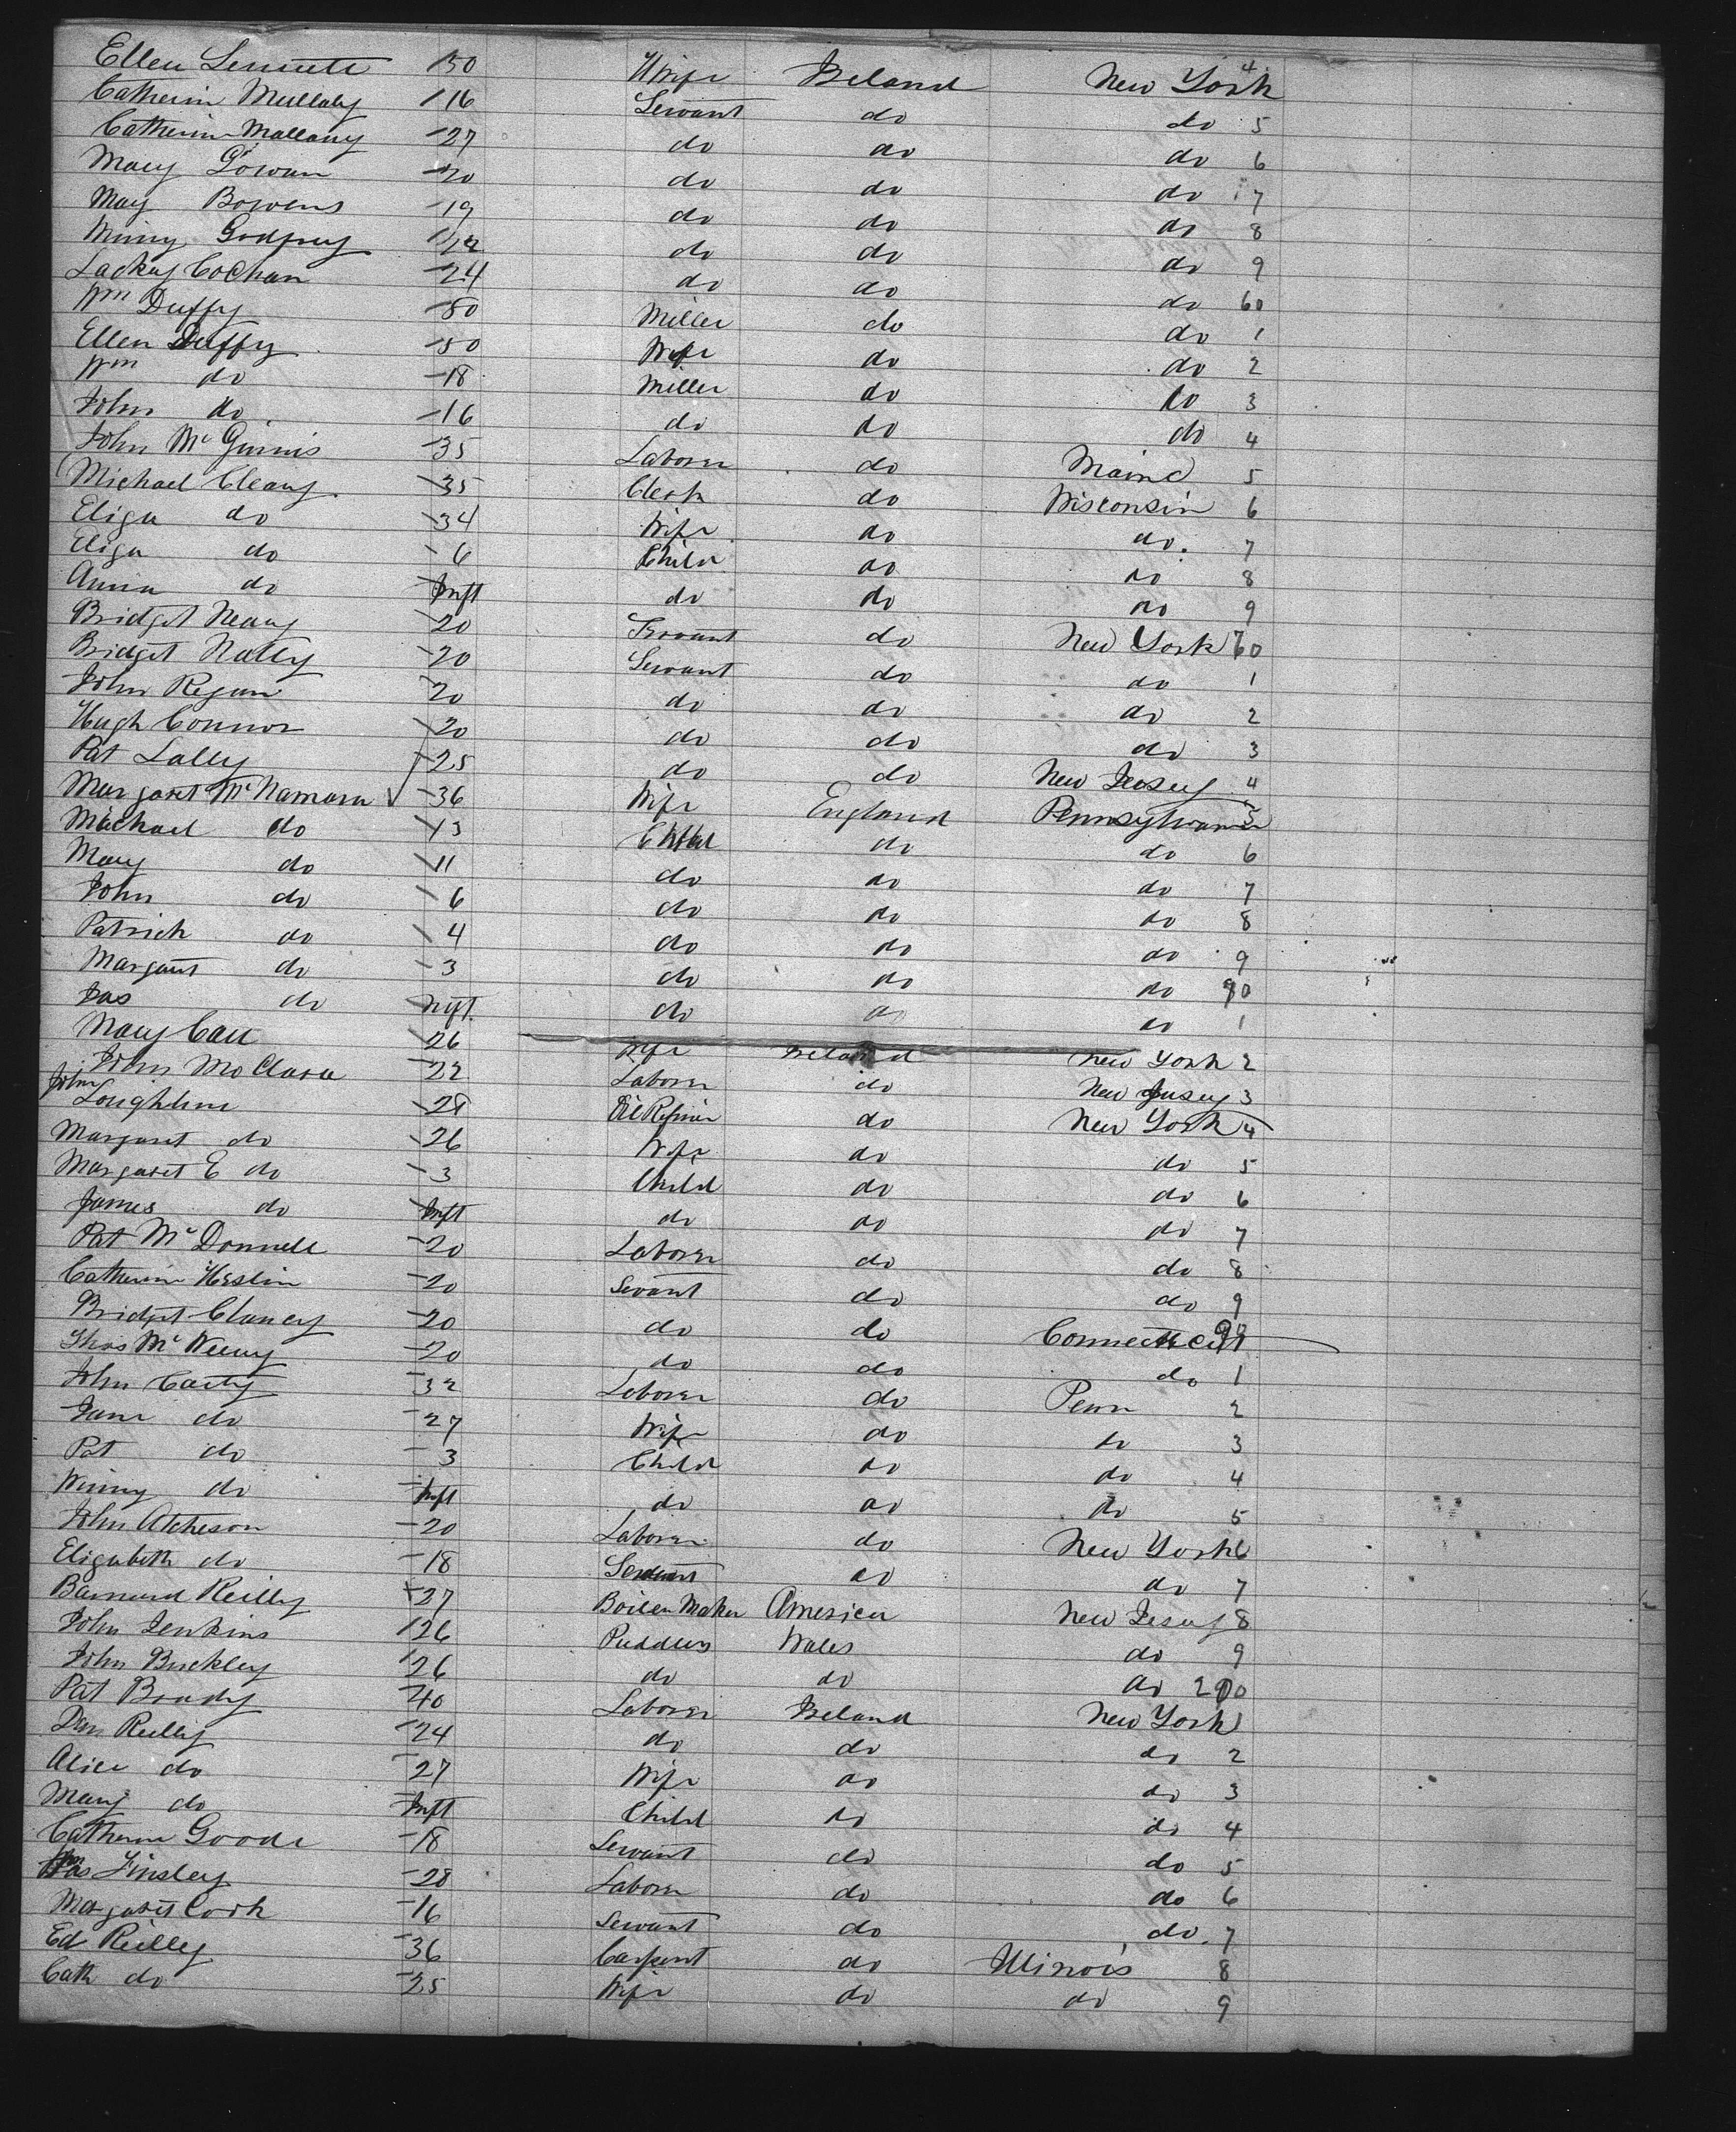 Ellen 50 Wife Ireland New York 4
Catherin Mullaly 16 Servant do do 5
Catherin Mallany 27 do do do 6
Mary Gowan 20 do do do 7
May Bowens 19 do do do 8
Minny Godfrey do do do 9
Lackey Cochan 24 do do do 60
Wm Duffy 50 Miller do do 1
Ellen Duffy 50 Wife do do 2
Wm do 18 Miller do do 3
John do 16 do do do 4
John McGinnis 35 Laborer do Maine 5
Michael Cleary 35 Clerk do Wisconsin 6
Eliza do 34 Wife do do 7
Eliza do 6 Child do do 8
Anna do Inft do do do 9
Bridget Neary 20 Servant do New York 70
Bridget Nally 20 Servant do do 1
John Regan 20 do do do 2
Hugh Connor 20 do do do 3
Pat Lally 25 do do New Jersey 4
Margaret McNamara 36 Wife England Pennsylvania 5
Michael do 13 Child do do 6
Mary do 11 do do do 7
John do 6 do do do 8
Patrick do 4 do do do 9
Margaret do 3 do do do 80
Jas do Inft. do do do 1
Mary Carr 26 Wife Ireland New York 2
John McClara 22 Laborer do New Jersey 3
John Loughlin 28 Oil Refiner do New York 4
Margaret do 26 Wife do do 5
Margaret E do 3 Child do do 6
James do Inft do do do 7
Pat McDonnell 20 Laborer do do 8
Catherin Heslin 20 Servant do do 9
Bridget Clancy 20 do do Connecticut 90
Thos McWeeny 20 do do do 1
John Carty 32 Laborer do Penn 2
Jane do 27 Wife do do 3
Pat do 3 Child do do 4
Winny do Inft do do do 5
John Atcheson 20 Laborer do New York 6
Elizabeth do 18 Servant do do 7
Barnard Reilly 27 Boiler Maker America New Jersey 8
John Jenkins 26 Puddlers Wales do 9
John Buckley 26 do do do 200
Pat Brady 40 Laborer Ireland New York 1
Dan Reilly 24 do do do 2
Alice do 27 Wife do do 3
Mary do Inft Child do do 4
Catherine Goode 18 Servant do do 5
Tinsley 28 Laborer do do 6
Margaret Cork 16 Servant do do 7
Ed Reilly 36 Carpent do Illinois 8
Cath do 25 Wife do do 9